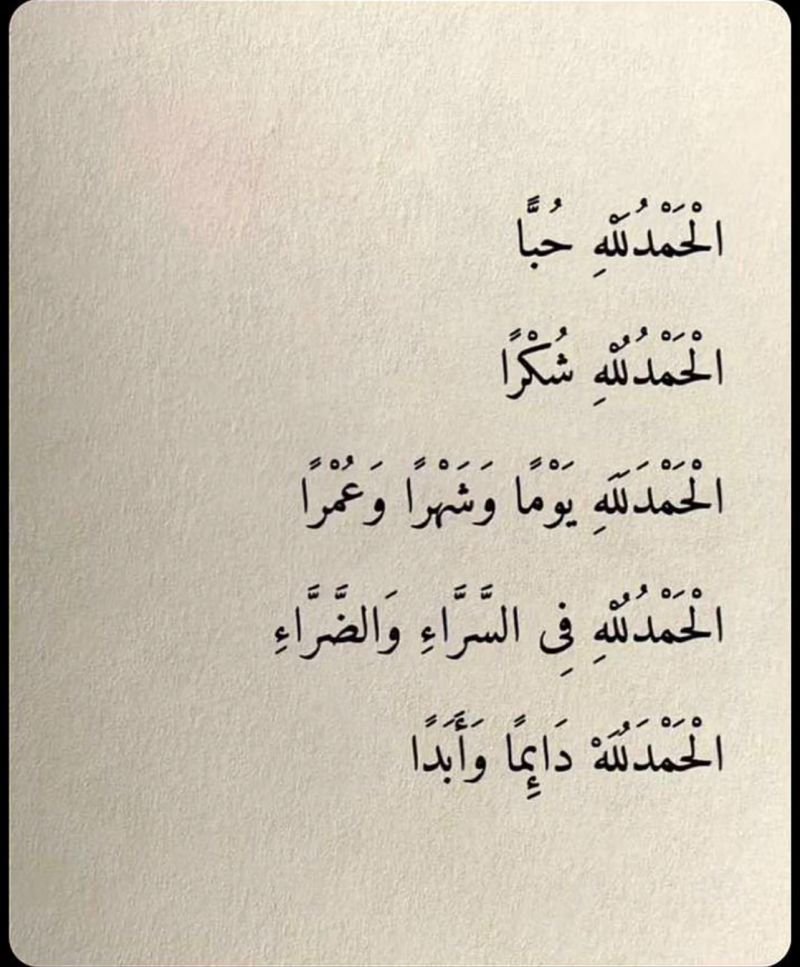 الْحَمْدُلَلْهِ حُبًّا
الْحَمْدُلُلْهِ شُكْرًا
الْحَمْدَلَلَهِ يَوْمًا وَشَهْرًا وَعُمْرًا
الْحَمْدُلُلْهِ فِى السَّرَّاءِ وَالضَّرَّاءِ
الْحَمْدَلُلَهْ دَائِمًا وَأَبَدًا